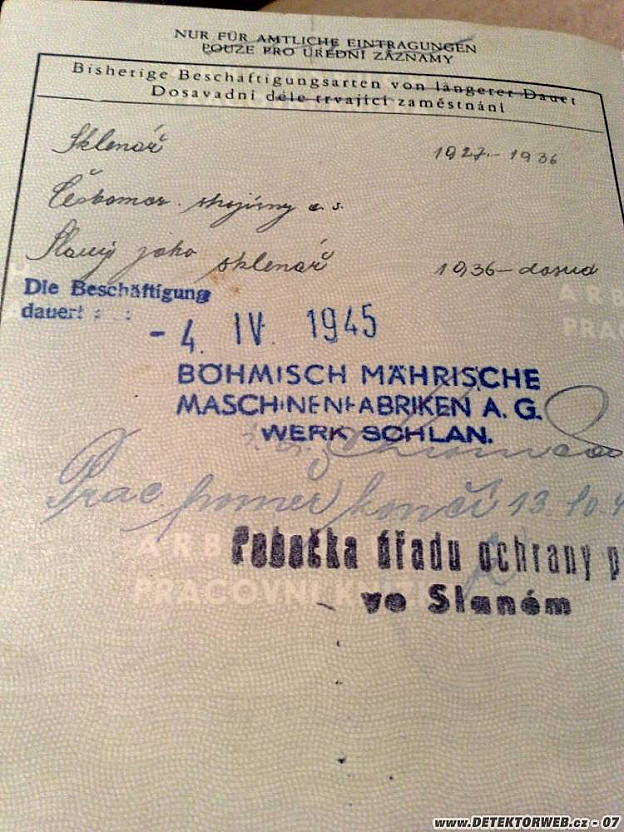 NUR FÜR AMTLICHE EINTRAGUNGEN
POUZE PRO ÚŘEDNÍ ZÁZNAMY
Bisherige Beschäftigungsarten von längerer Dauer
Dosavadní déle trvající zaměstnání
Sklenář 1927 - 1936
Českomor. strojírny a. s.
Slaný jako sklenář 1936 - dosud
Die Beschäftigung
dauert : :
- 4. IV. 1945
BÖHMISCH MÄHRISCHE
MASCHINENFABRIKEN A. G.
WERK SCHLAN.
Prac poměr končí 13. 10. 4
ARB
PRA
ARB
Pobočka úřadu ochrany p
PRACOVNÍ KNÍŽ
ve Slaném
www.DETEKTORWEB.cz - 07